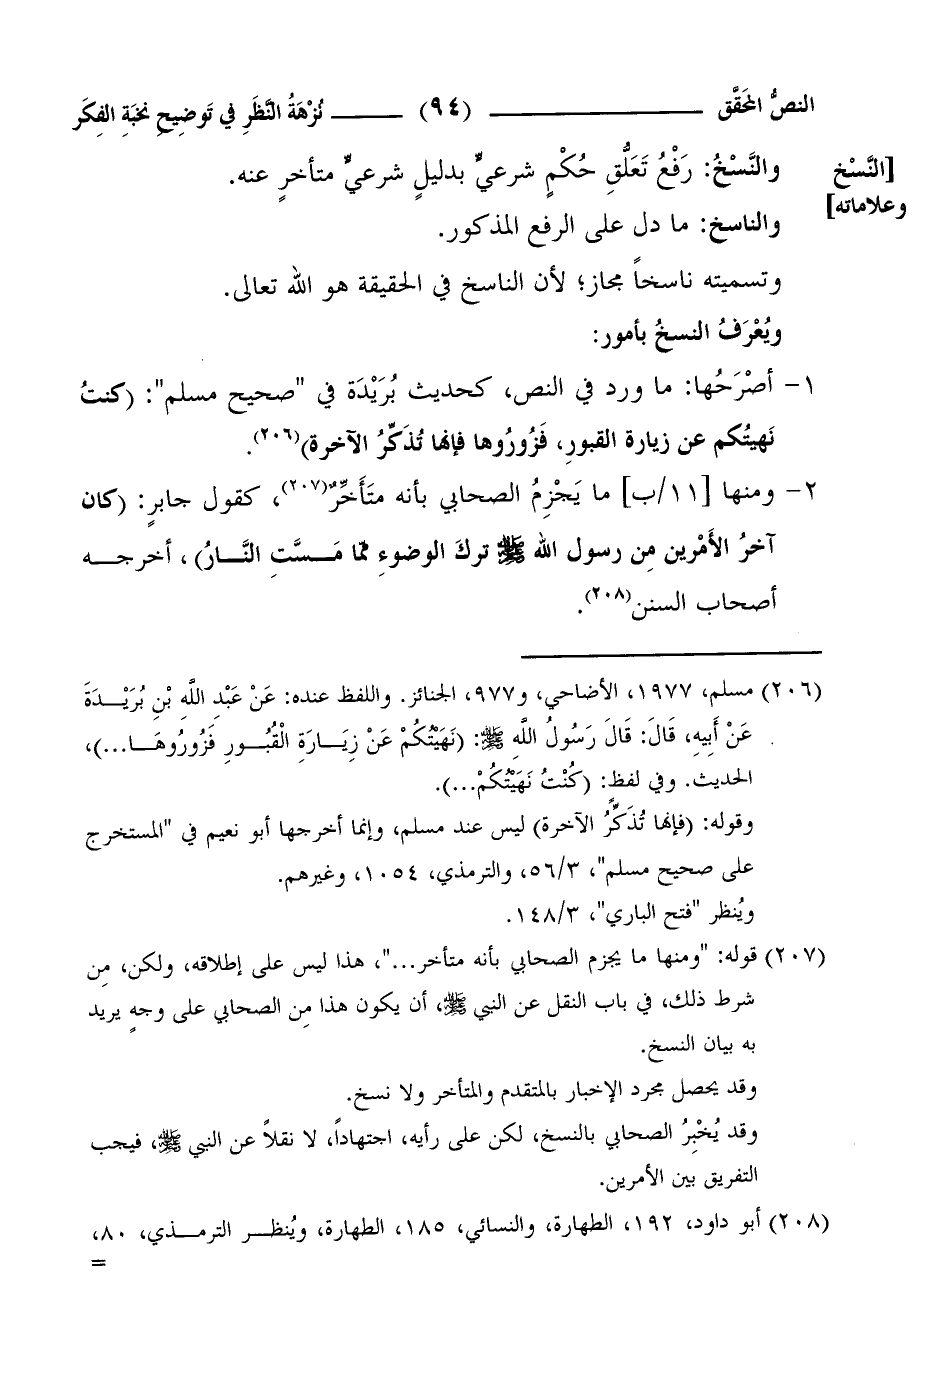 النصُّ المحَقَّق ــــــــــــــــ (٩٤) ــــــــ نُزْهَةُ النَّظَرِ في تَوضِيحِ نخبَةِ الفِكَر
[النَّسْخ
وعلاماته]
والنَّسْخُ: رَفْعُ تَعَلُّقِ حُكْمٍ شرعيٍّ بدليلٍ شرعيٍّ متأخرٍ عنه.
والناسخ: ما دل على الرفع المذكور.
وتسميته ناسخاً مجاز؛ لأن الناسخ في الحقيقة هو الله تعالى.
ويُعْرَفُ النسخُ بأمور:
١- أصْرَحُها: ما ورد في النص، كحديث بُرَيْدَة في "صحيح مسلم": (كنتُ
نَهيتُكم عن زيارة القبورِ، فَزُورُوها فإنها تُذَكِّرُ الآخرة)(٢٠٦).
٢- ومنها [١١/ب] ما يَجْزِمُ الصحابي بأنه متَأَخِّرٌ(٢٠٧)، كقول جابرٍ: (كان
آخرُ الأَمْرين مِن رسول الله ﷺ تركَ الوضوءِ ممّا مَسَّتِ النَّـارُ)، أخرجـه
أصحاب السنن(٢٠٨).
(٢٠٦) مسلم، ١٩٧٧، الأضاحي، و٩٧٧، الجنائز. واللفظ عنده: عَنْ عَبْدِ اللَّهِ بْنِ بُرَيْـدَةَ
عَنْ أَبِيهِ، قَالَ: قَالَ رَسُولُ اللَّهِ ﷺ: (نَهَيْتُكُمْ عَنْ زِيَـارَةِ الْقُبُـورِ فَزُورُوهَـا...)،
الحديث. وفي لفظ: (كُنْتُ نَهَيْتُكُمْ...).
وقوله: (فإنها تُذَكِّرُ الآخرة) ليس عند مسلم، وإنما أخرجها أبو نعيم في "المستخرج
على صحيح مسلم"، ٥٦/٣، والترمذي، ١٠٥٤، وغيرهم.
ويُنظر "فتح الباري"، ١٤٨/٣.
(٢٠٧) قوله: "ومنها ما يجزم الصحابي بأنه متأخر..."، هذا ليس على إطلاقه، ولكن، مِن
شرط ذلك، في باب النقل عن النبي ﷺ، أن يكون هذا مِن الصحابي على وجهٍ يريد
به بيان النسخ.
وقد يحصل مجرد الإخبار بالمتقدم والمتأخر ولا نسخ.
وقد يُخْبِرُ الصحابي بالنسخ، لكن على رأيه، اجتهاداً، لا نقلاً عن النبي ﷺ، فيجب
التفريق بين الأمرين.
(٢٠٨) أبو داود، ١٩٢، الطهارة، والنسائي، ١٨٥، الطهارة، ويُنظـر الترمـذي، ٨٠،
=